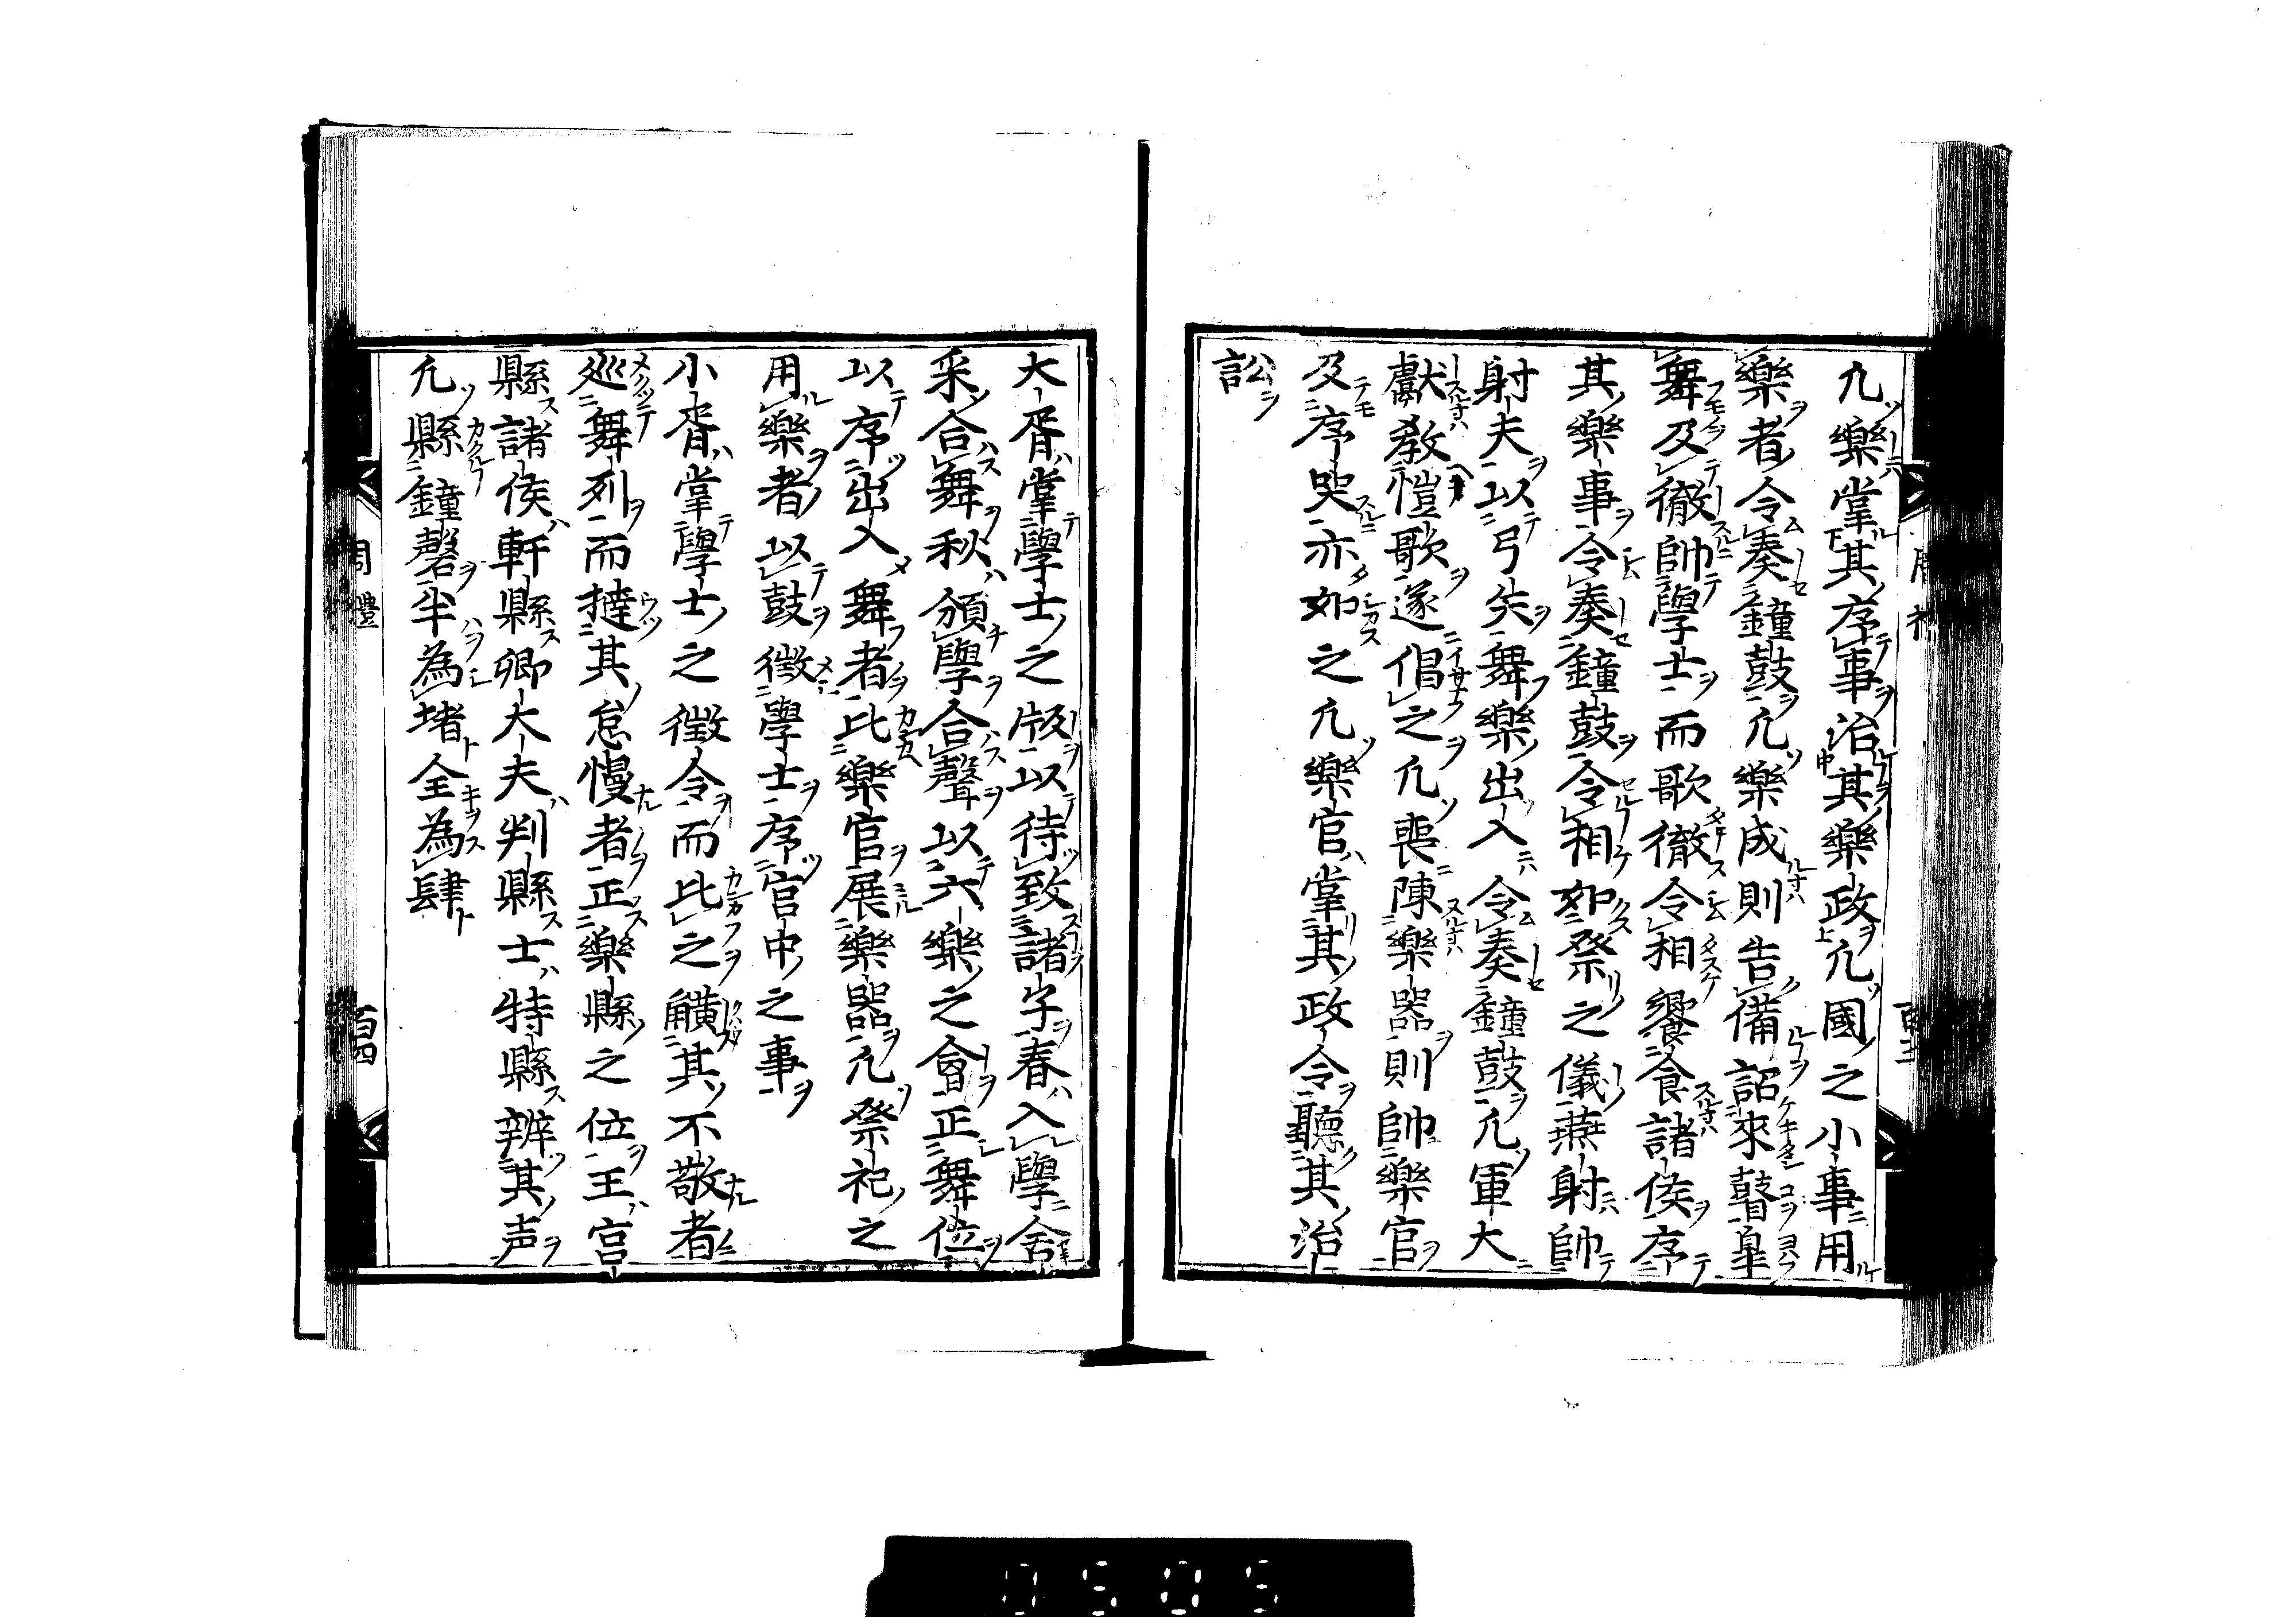 凢樂掌其序事治其樂政凢國之小事用
樂者令奏鐘鼓凢樂成則告備詔來瞽臯
舞及徹帥學士而歌徹令相饗食諸侯序
其樂事令奏鐘鼓令相如祭之儀燕射帥
射夫以弓矢舞樂出入令奏鐘鼓凢軍大
獻教愷歌遂倡之凢喪陳樂器則帥樂官
及序哭亦如之凢樂官掌其政令聽其治
訟
大胥掌學士之版以待致諸子春入學舍
采合舞秋頒學合聲以六樂之會正舞位
以序出入舞者比樂官展樂器凢祭祀之
用樂者以鼓徵學士序宮中之事
小胥掌學士之徵令而比之觵其不敬者
巡舞列而撻其怠慢者正樂縣之位王宮
縣諸侯軒縣卿大夫判縣士特縣辨其声
凢縣鐘磬半為堵全為肆
周禮
百四
0505